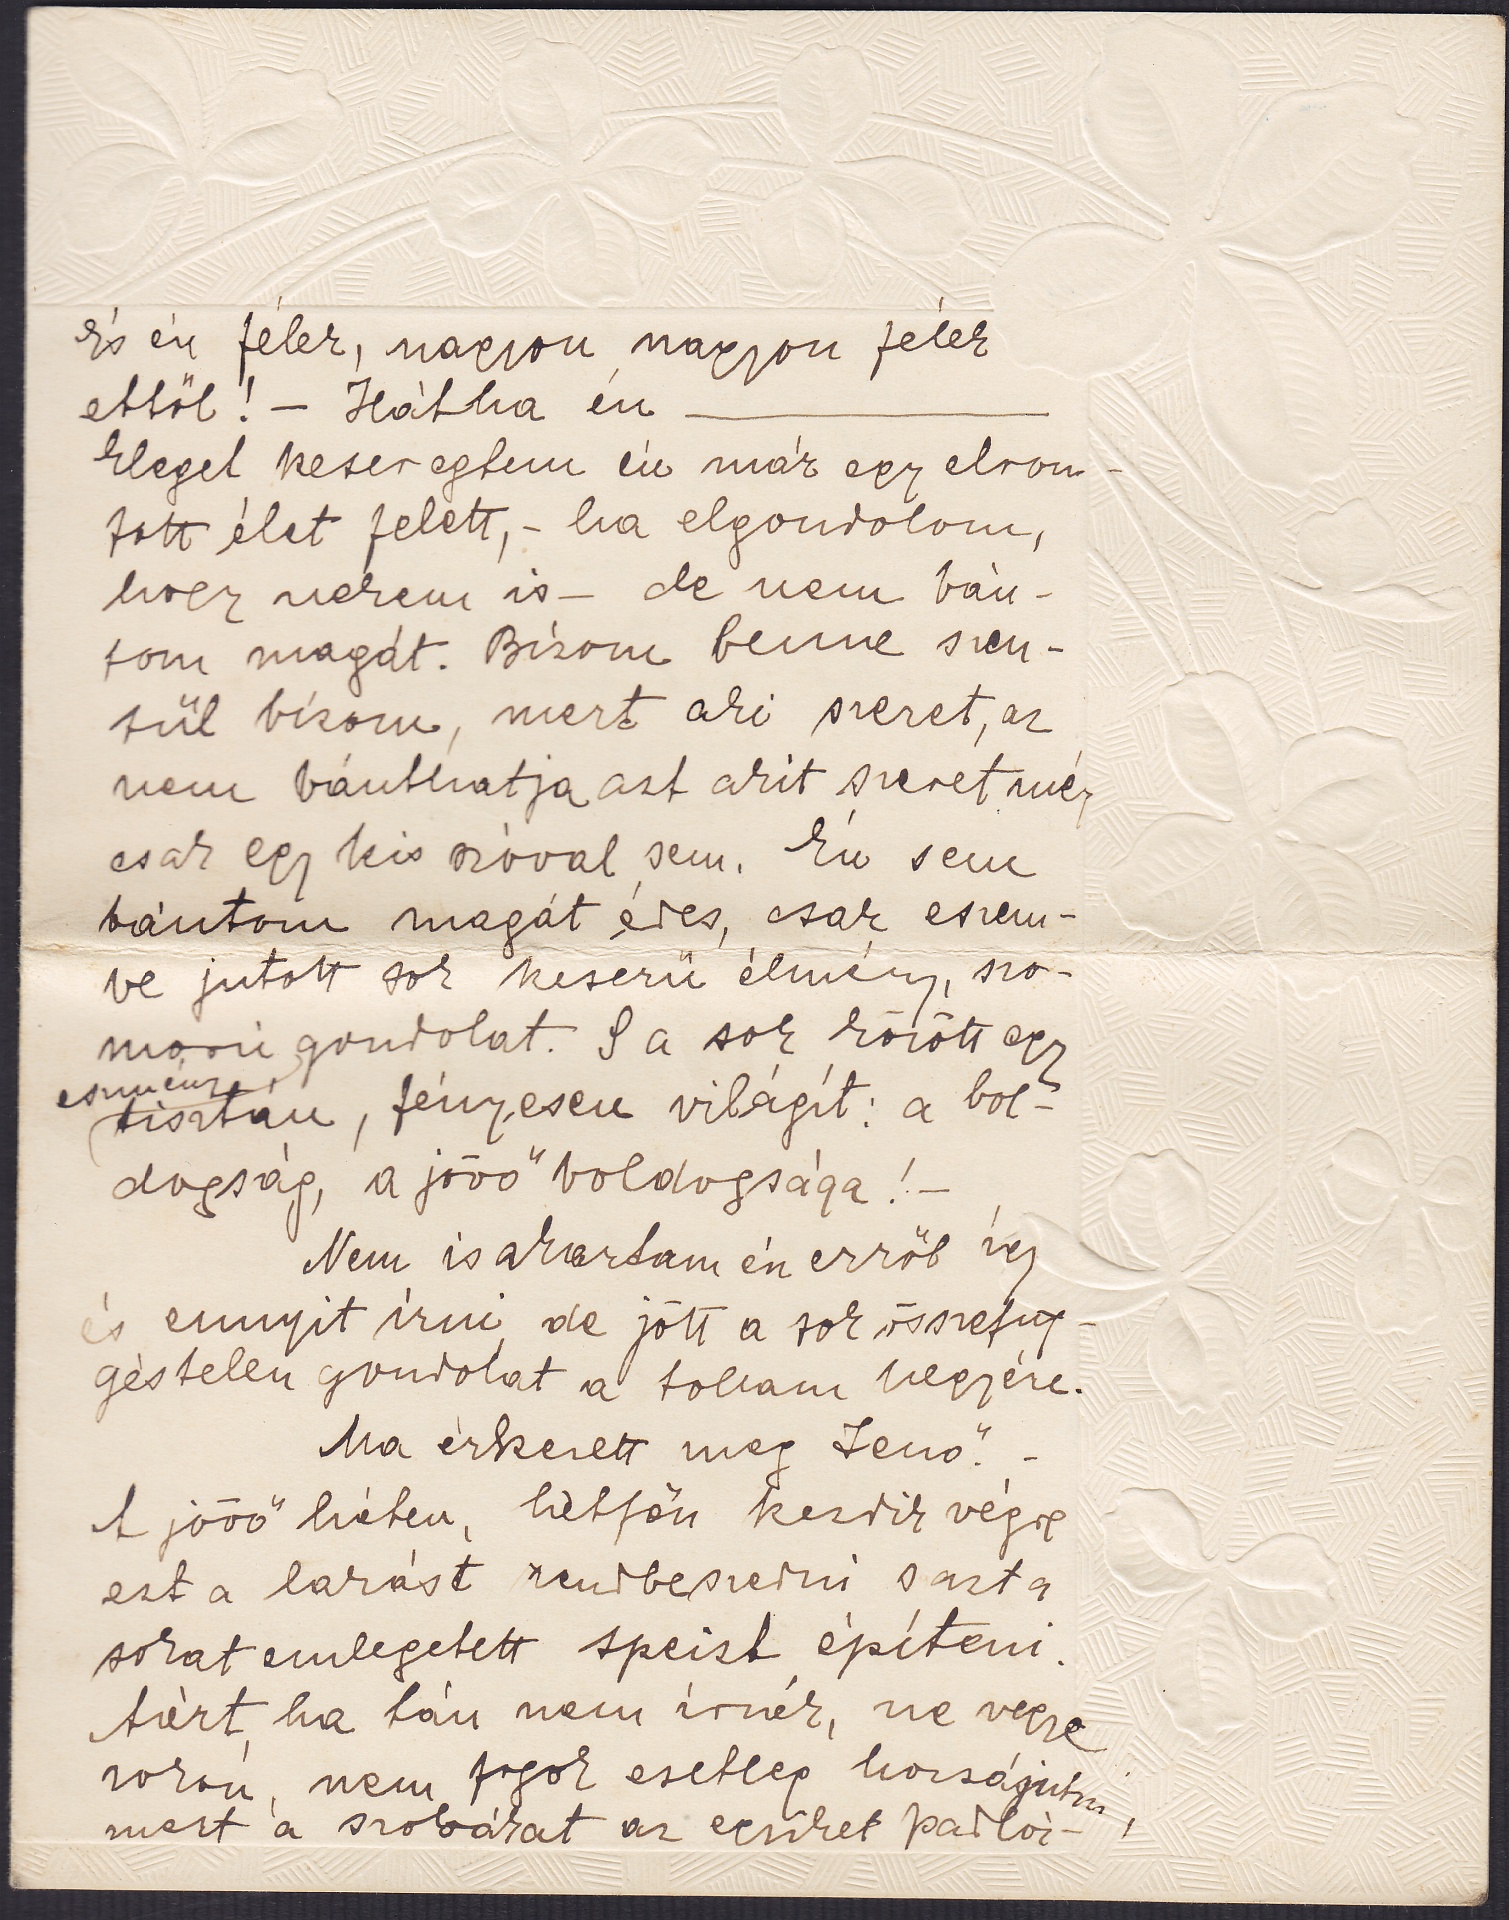 És én félek, nagyon, nagyon félek
ettől! – Hátha én ―――
Eleget keseregtem én már egy elron-
tott élet felett, – ha elgondolom,
hogy nekem is – de nem bán-
tom magát. Bízom benne szen-
tül bízom, mert aki szeret, az
nem bánthatja azt akit szeret még
csak egy kis szóval sem. Én sem
bántom magát édes, csak eszem-
be jutott sok keserü élmény, szo-
morú gondolat. S a sok között egy
eszmény
tisztán, fényesen világít: a bol-
dogság, a jövő boldogsága! –
Nem is akartam én erről így
és ennyit írni, de jött a sok összefüg-
géstelen gondolat a tollam hegyére.
Ma érkezett meg Jenő. –
A jövő héten, hétfőn kezdik végre
ezt a lakást rendbeszedni s azt a
sokat emlegetett speist építeni.
Azért, ha tán nem írnék, ne vegye
zokon, nem fogok esetleg hozzájutni,
mert a szobákat az egyiket padlóz-